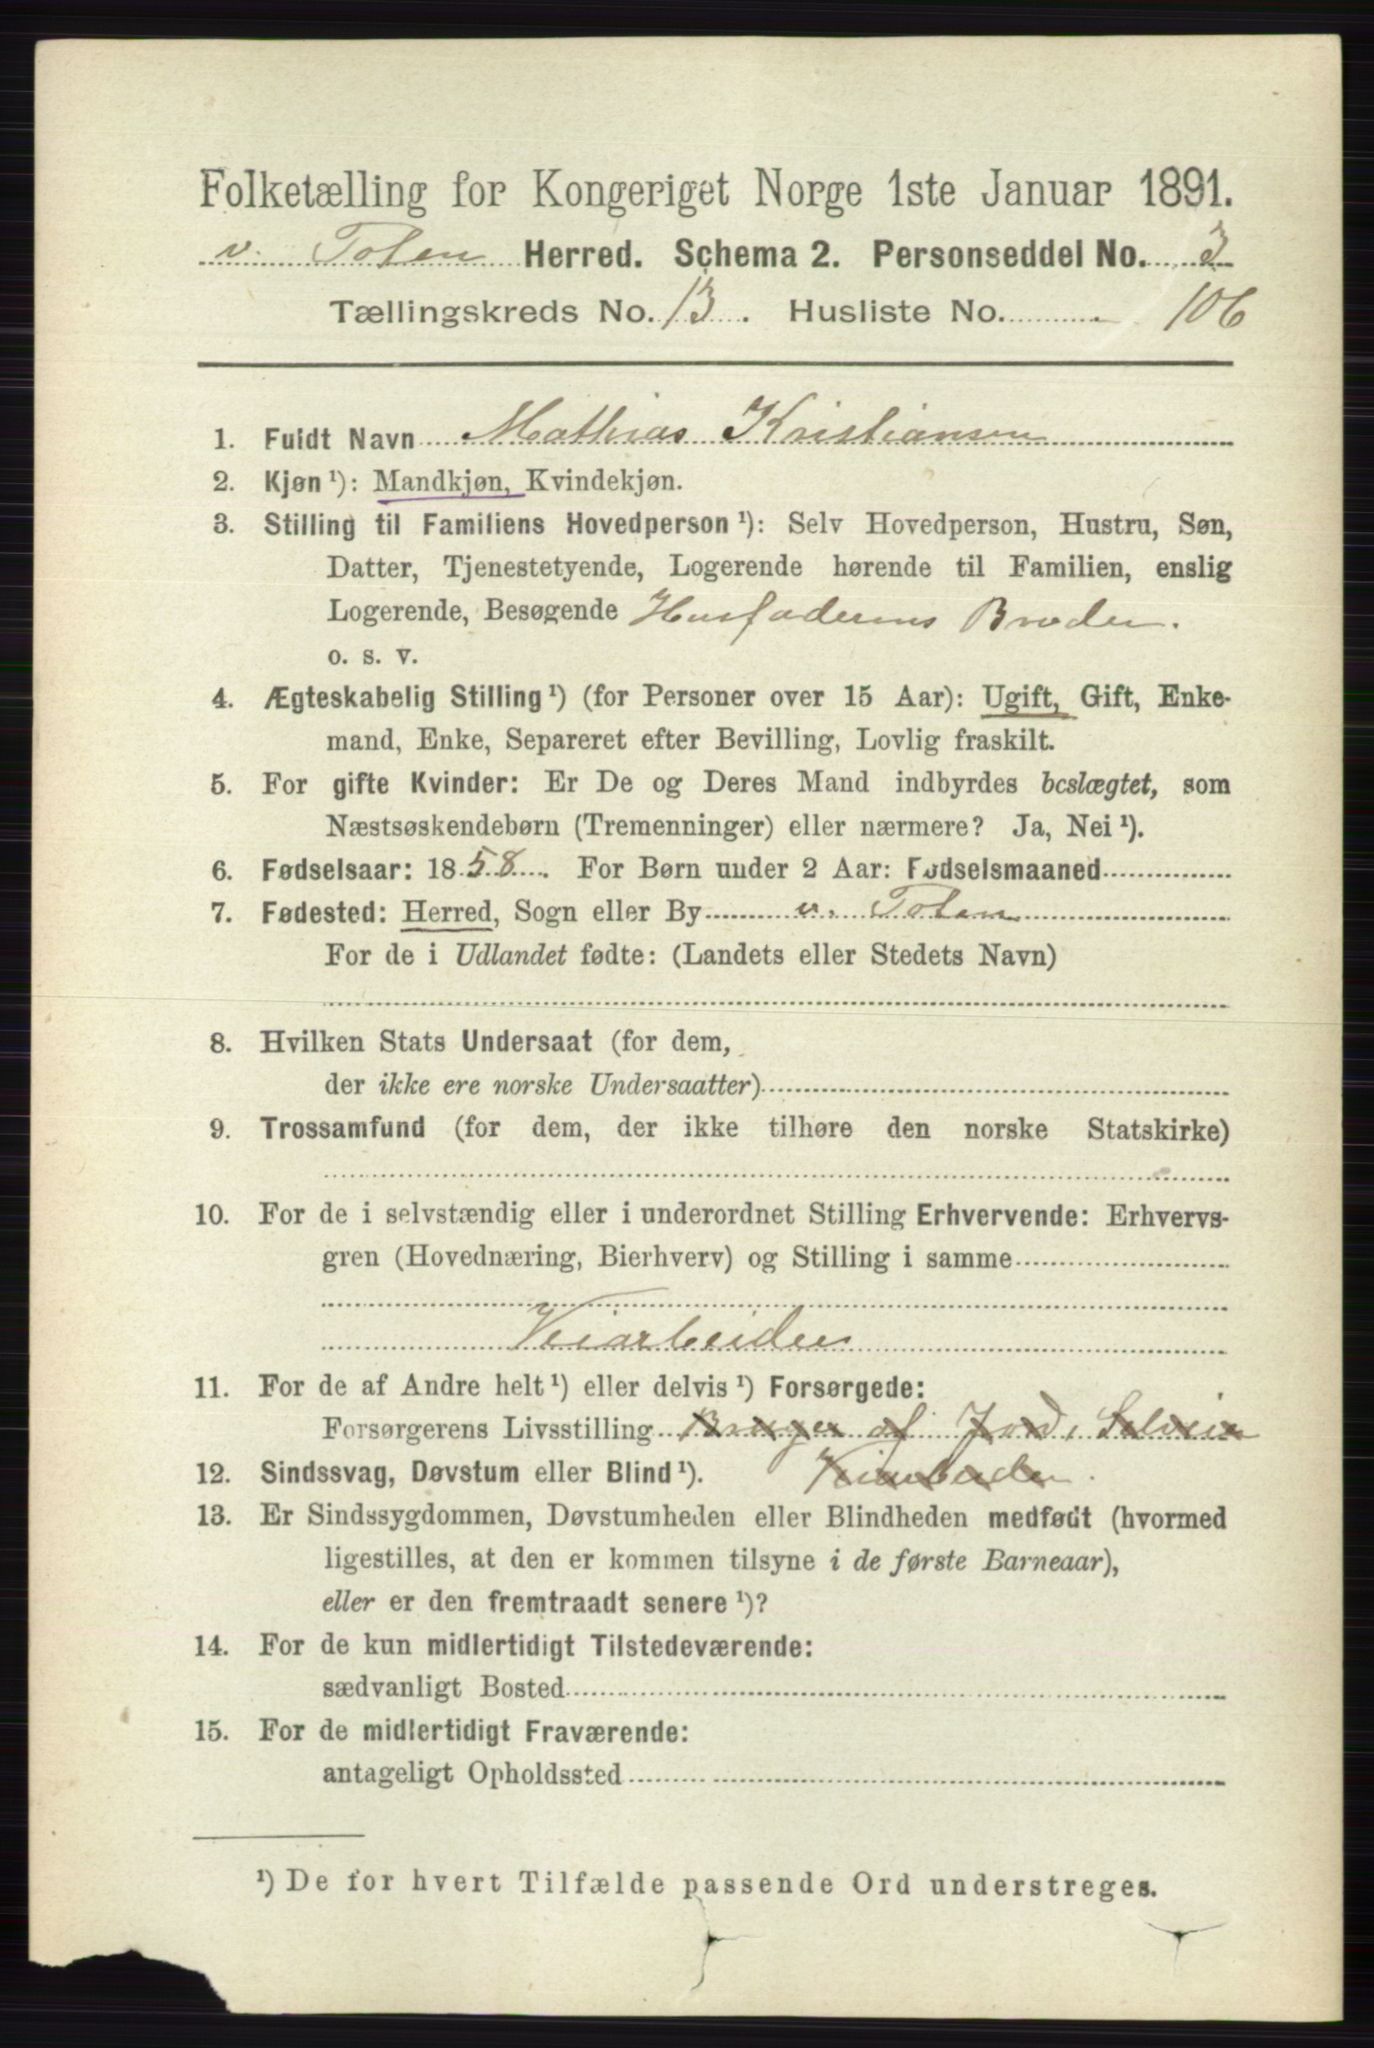 Folketælling for Kongeriget Norge 1ste Januar 1891.
v. Toten Herred. Schema 2. Personseddel No. 3
Tællingskreds No. 13. Husliste No. 106
1. Fuldt Navn Mathias Kristiansen
2. Kjøn ¹): Mandkjøn, Kvindekjøn.
3. Stilling til Familiens Hovedperson ¹): Selv Hovedperson, Hustru, Søn,
Datter, Tjenestetyende, Logerende hørende til Familien, enslig
Logerende, Besøgende Husfaderens Broder.
o. s. v.
4. Ægteskabelig Stilling ¹) (for Personer over 15 Aar): Ugift, Gift, Enke-
mand, Enke, Separeret efter Bevilling, Lovlig fraskilt.
5. For gifte Kvinder: Er De og Deres Mand indbyrdes beslægtet, som
Næstsøskendebørn (Tremenninger) eller nærmere? Ja, Nei ¹).
6. Fødselsaar: 1858. For Børn under 2 Aar: Fødselsmaaned
7. Fødested: Herred, Sogn eller By v. Toten
For de i Udlandet fødte: (Landets eller Stedets Navn)
8. Hvilken Stats Undersaat (for dem,
der ikke ere norske Undersaatter)
9. Trossamfund (for dem, der ikke tilhøre den norske Statskirke)
10. For de i selvstændig eller i underordnet Stilling Erhvervende: Erhvervs-
gren (Hovednæring, Bierhverv) og Stilling i samme
Veiarbeider
11. For de af Andre helt ¹) eller delvis ¹) Forsørgede:
Forsørgerens Livsstilling Bruger af Jord, Selveier
12. Sindssvag, Døvstum eller Blind ¹). Veiarbeider.
13. Er Sindssygdommen, Døvstumheden eller Blindheden medfødt (hvormed
ligestilles, at den er kommen tilsyne i de første Barneaar),
eller er den fremtraadt senere ¹)?
14. For de kun midlertidigt Tilstedeværende:
sædvanligt Bosted
15. For de midlertidigt Fraværende:
antageligt Opholdssted
¹) De for hvert Tilfælde passende Ord understreges.